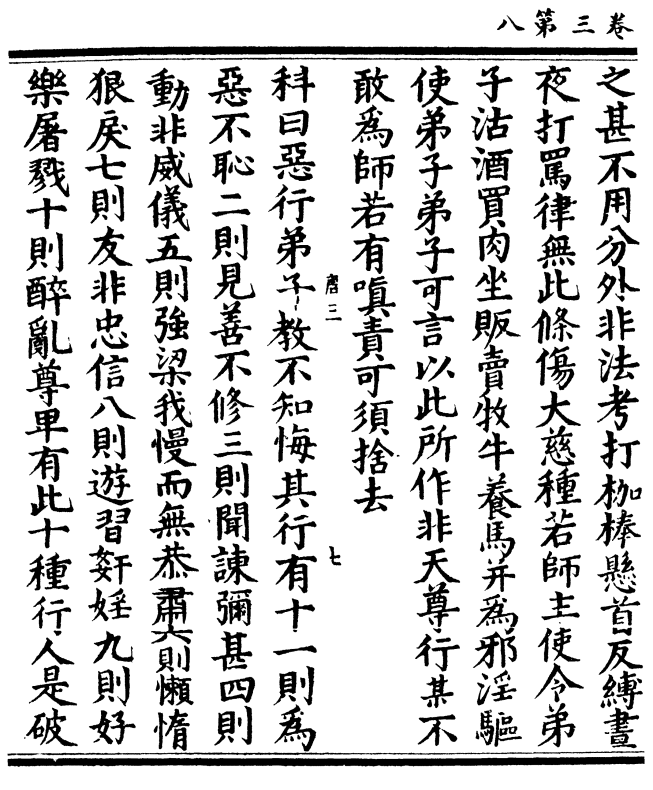 卷三第八
之甚不用分外非法考打枷棒懸首反縛晝
夜打罵律無此條傷大慈種若師主使令弟
子沽酒買肉坐販賣牧牛養馬并為邪淫驅
使弟子弟子可言以此所作非天尊行某不
敢為師若有嗔責可須捨去
唐三
七
科曰惡行弟子教不知悔其行有十一則為
惡不恥二則見善不修三則聞諫彌甚四則
動非威儀五則強梁我慢而無恭肅六則懶惰
狠戾七則友非忠信八則遊習姧婬九則好
樂屠戮十則醉亂尊卑有此十種行人是破